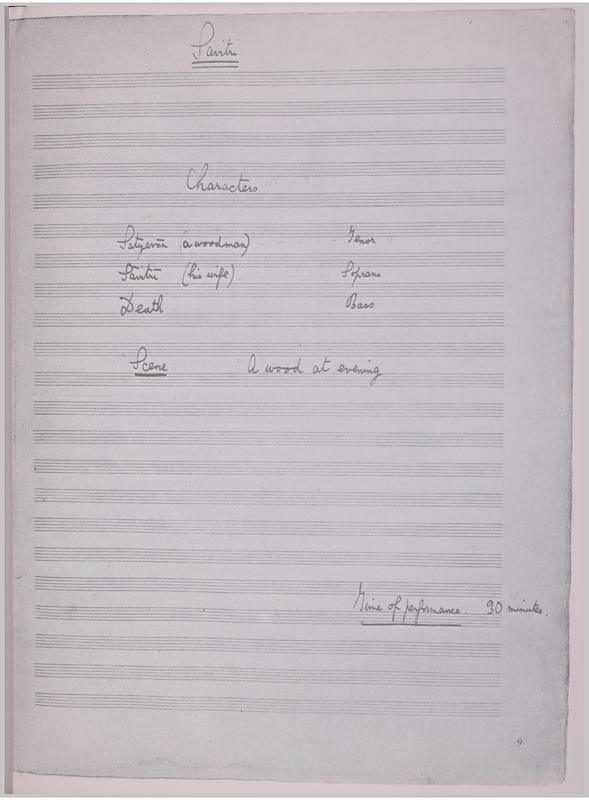 Savitri
Characters
Satyavān (a woodman) Tenor
Sāvitri (his wife) Soprano
Death Bass
Scene A wood at evening
Time of performance. 30 minutes.
9